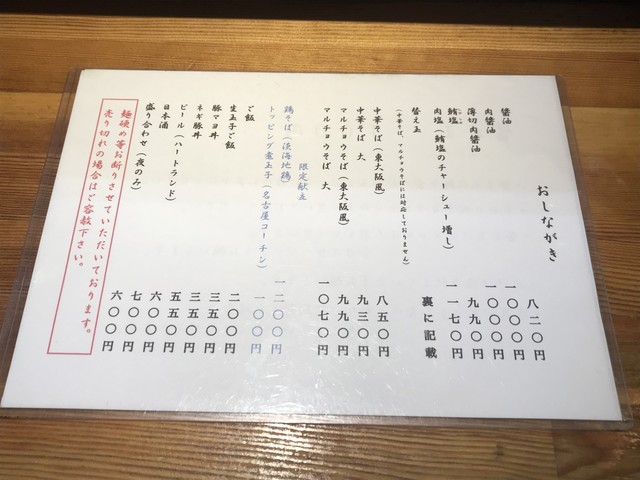 おしながき
醤油 八二〇円
肉醤油 一〇〇〇円
薄切肉醤油 一〇〇〇円
鮪塩 九九〇円
肉塩(鮪塩のチャーシュー増し) 一一七〇円
替え玉 裏に記載
(中華そば、マルチョウそばには対応しておりません)
中華そば(東大阪風) 八五〇円
中華そば 大 九三〇円
マルチョウそば(東大阪風) 九九〇円
マルチョウそば 大 一〇七〇円
限定献立
鶏そば(淡海地鶏) 一二〇〇円
トッピング煮玉子(名古屋コーチン) 一〇〇円
ご飯 二〇〇円
生玉子ご飯 三五〇円
豚マヨ丼 三五〇円
ネギ豚丼 五五〇円
ビール(ハートランド) 六〇〇円
日本酒 七〇〇円
盛り合わせ(夜のみ) 六〇〇円
麺硬め等お断りさせていただいております。
売り切れの場合はご容赦下さい。